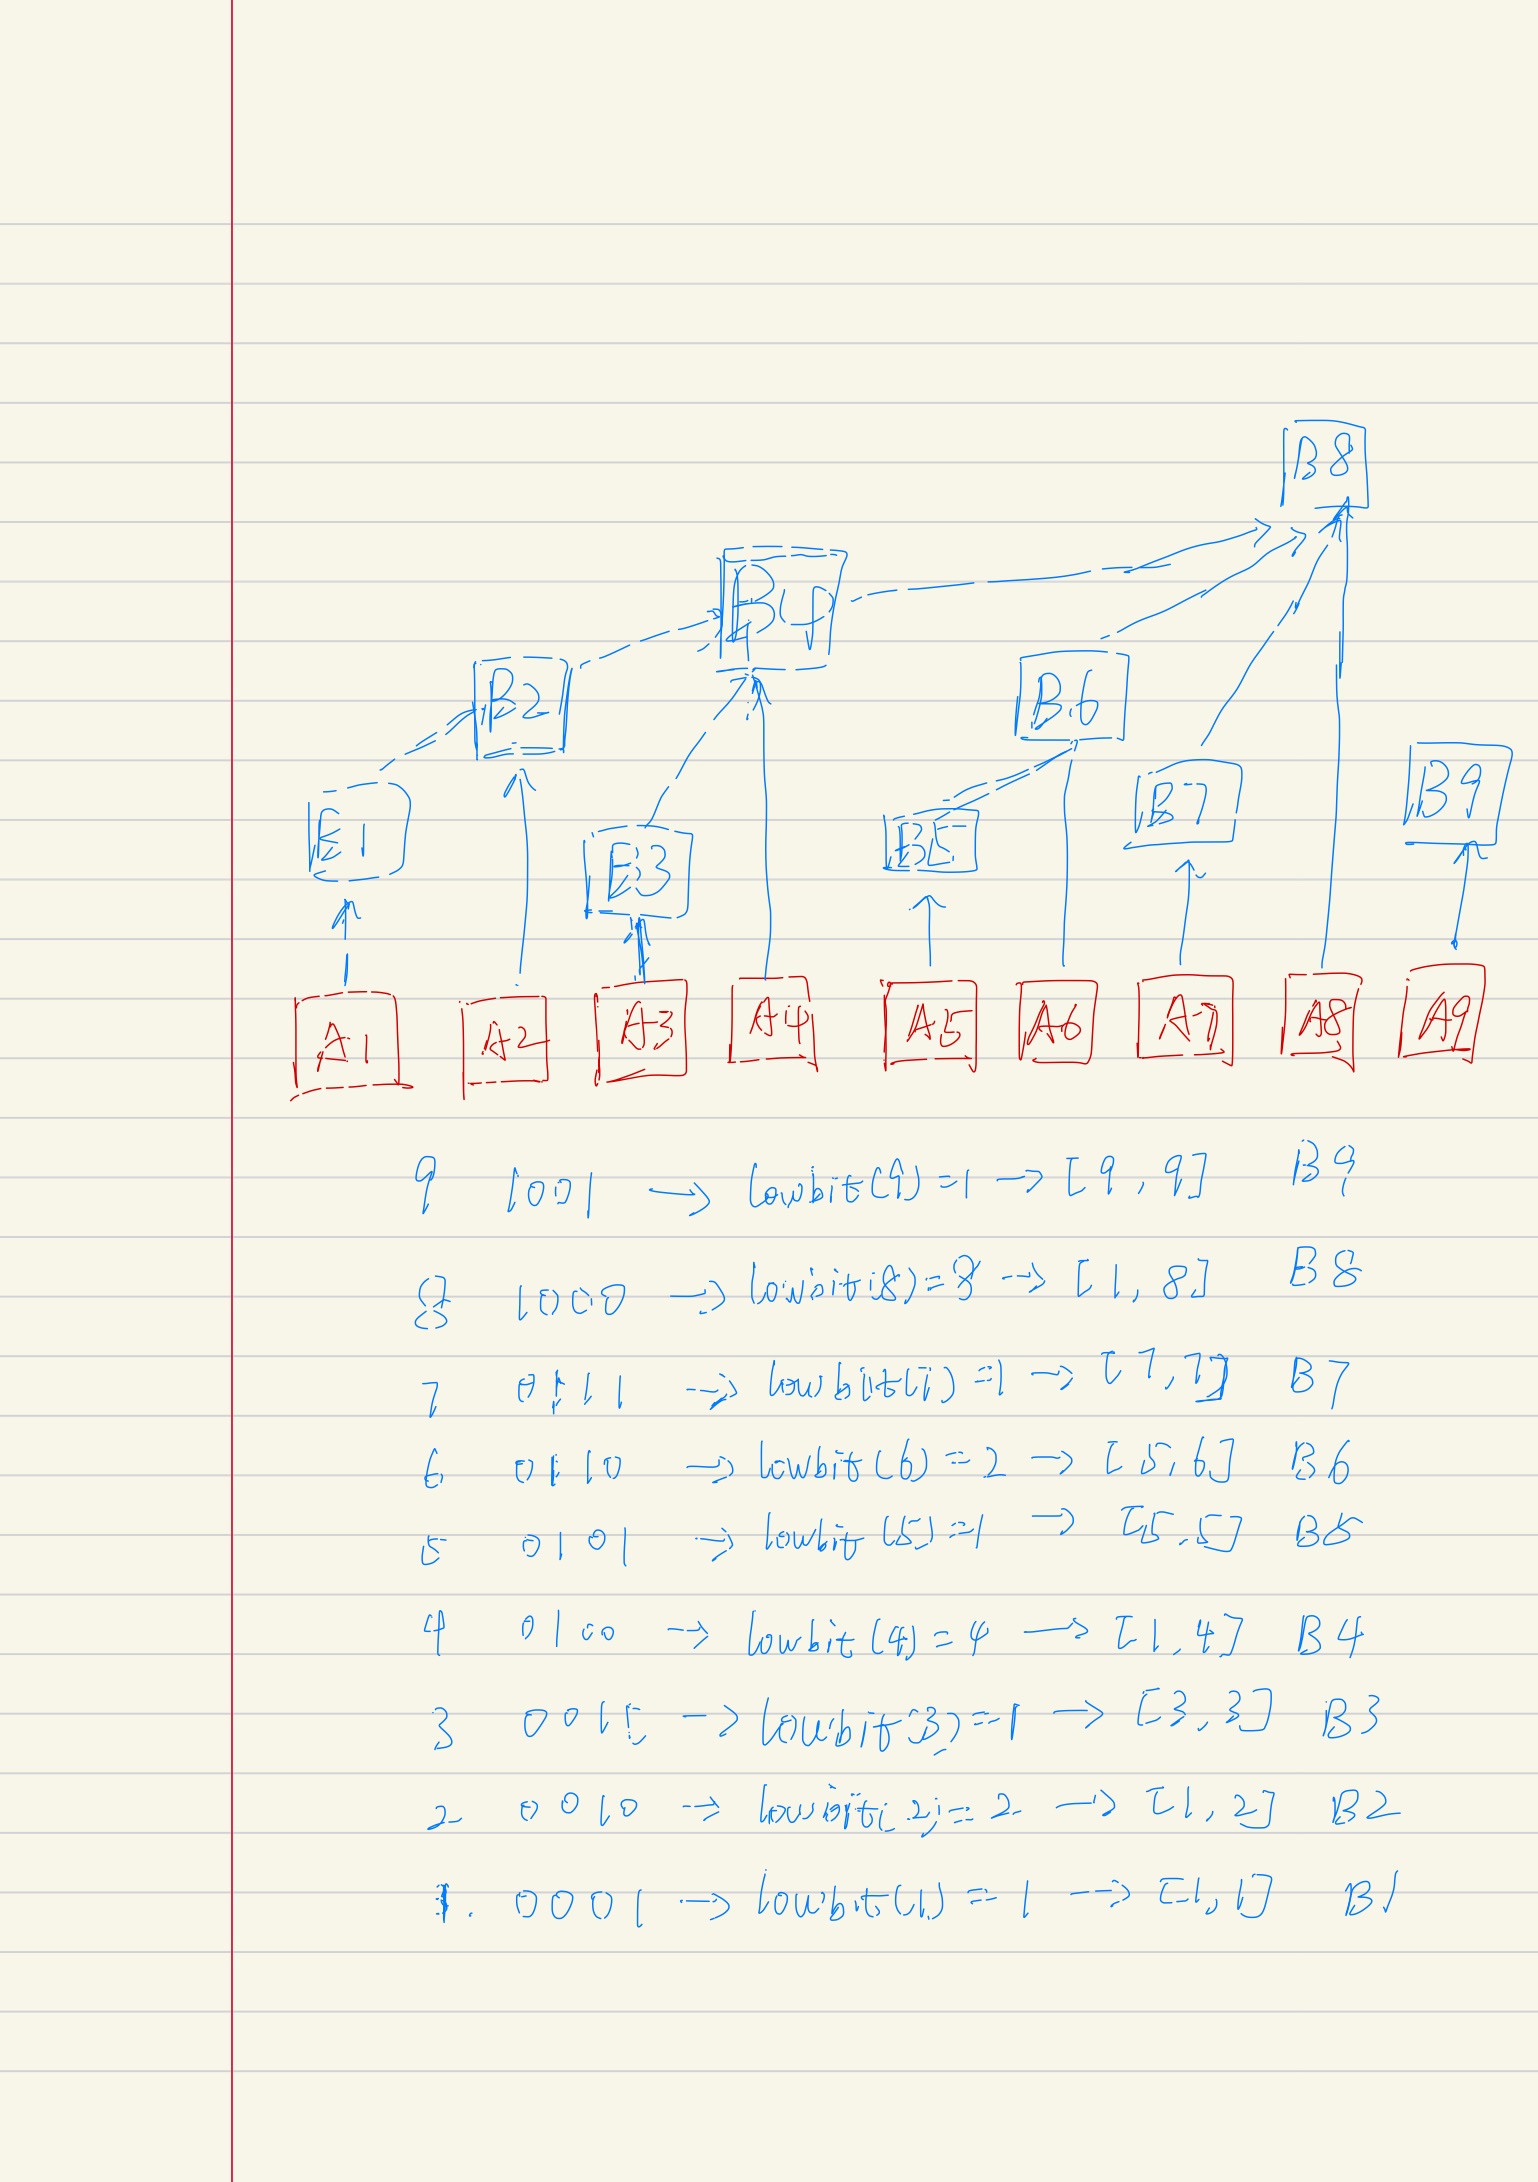 B8
B4
B2 B6
B1 B3 B5 B7 B9
A1 A2 A3 A4 A5 A6 A7 A8 A9
9 1001 → lowbit(9)=1 → [9,9] B9
8 1000 → lowbit(8)=8 → [1,8] B8
7 0111 → lowbit(7)=1 → [7,7] B7
6 0110 → lowbit(6)=2 → [5,6] B6
5 0101 → lowbit(5)=1 → [5,5] B5
4 0100 → lowbit(4)=4 → [1,4] B4
3 0011 → lowbit(3)=1 → [3,3] B3
2 0010 → lowbit(2)=2 → [1,2] B2
1. 0001 → lowbit(1)=1 → [1,1] B1